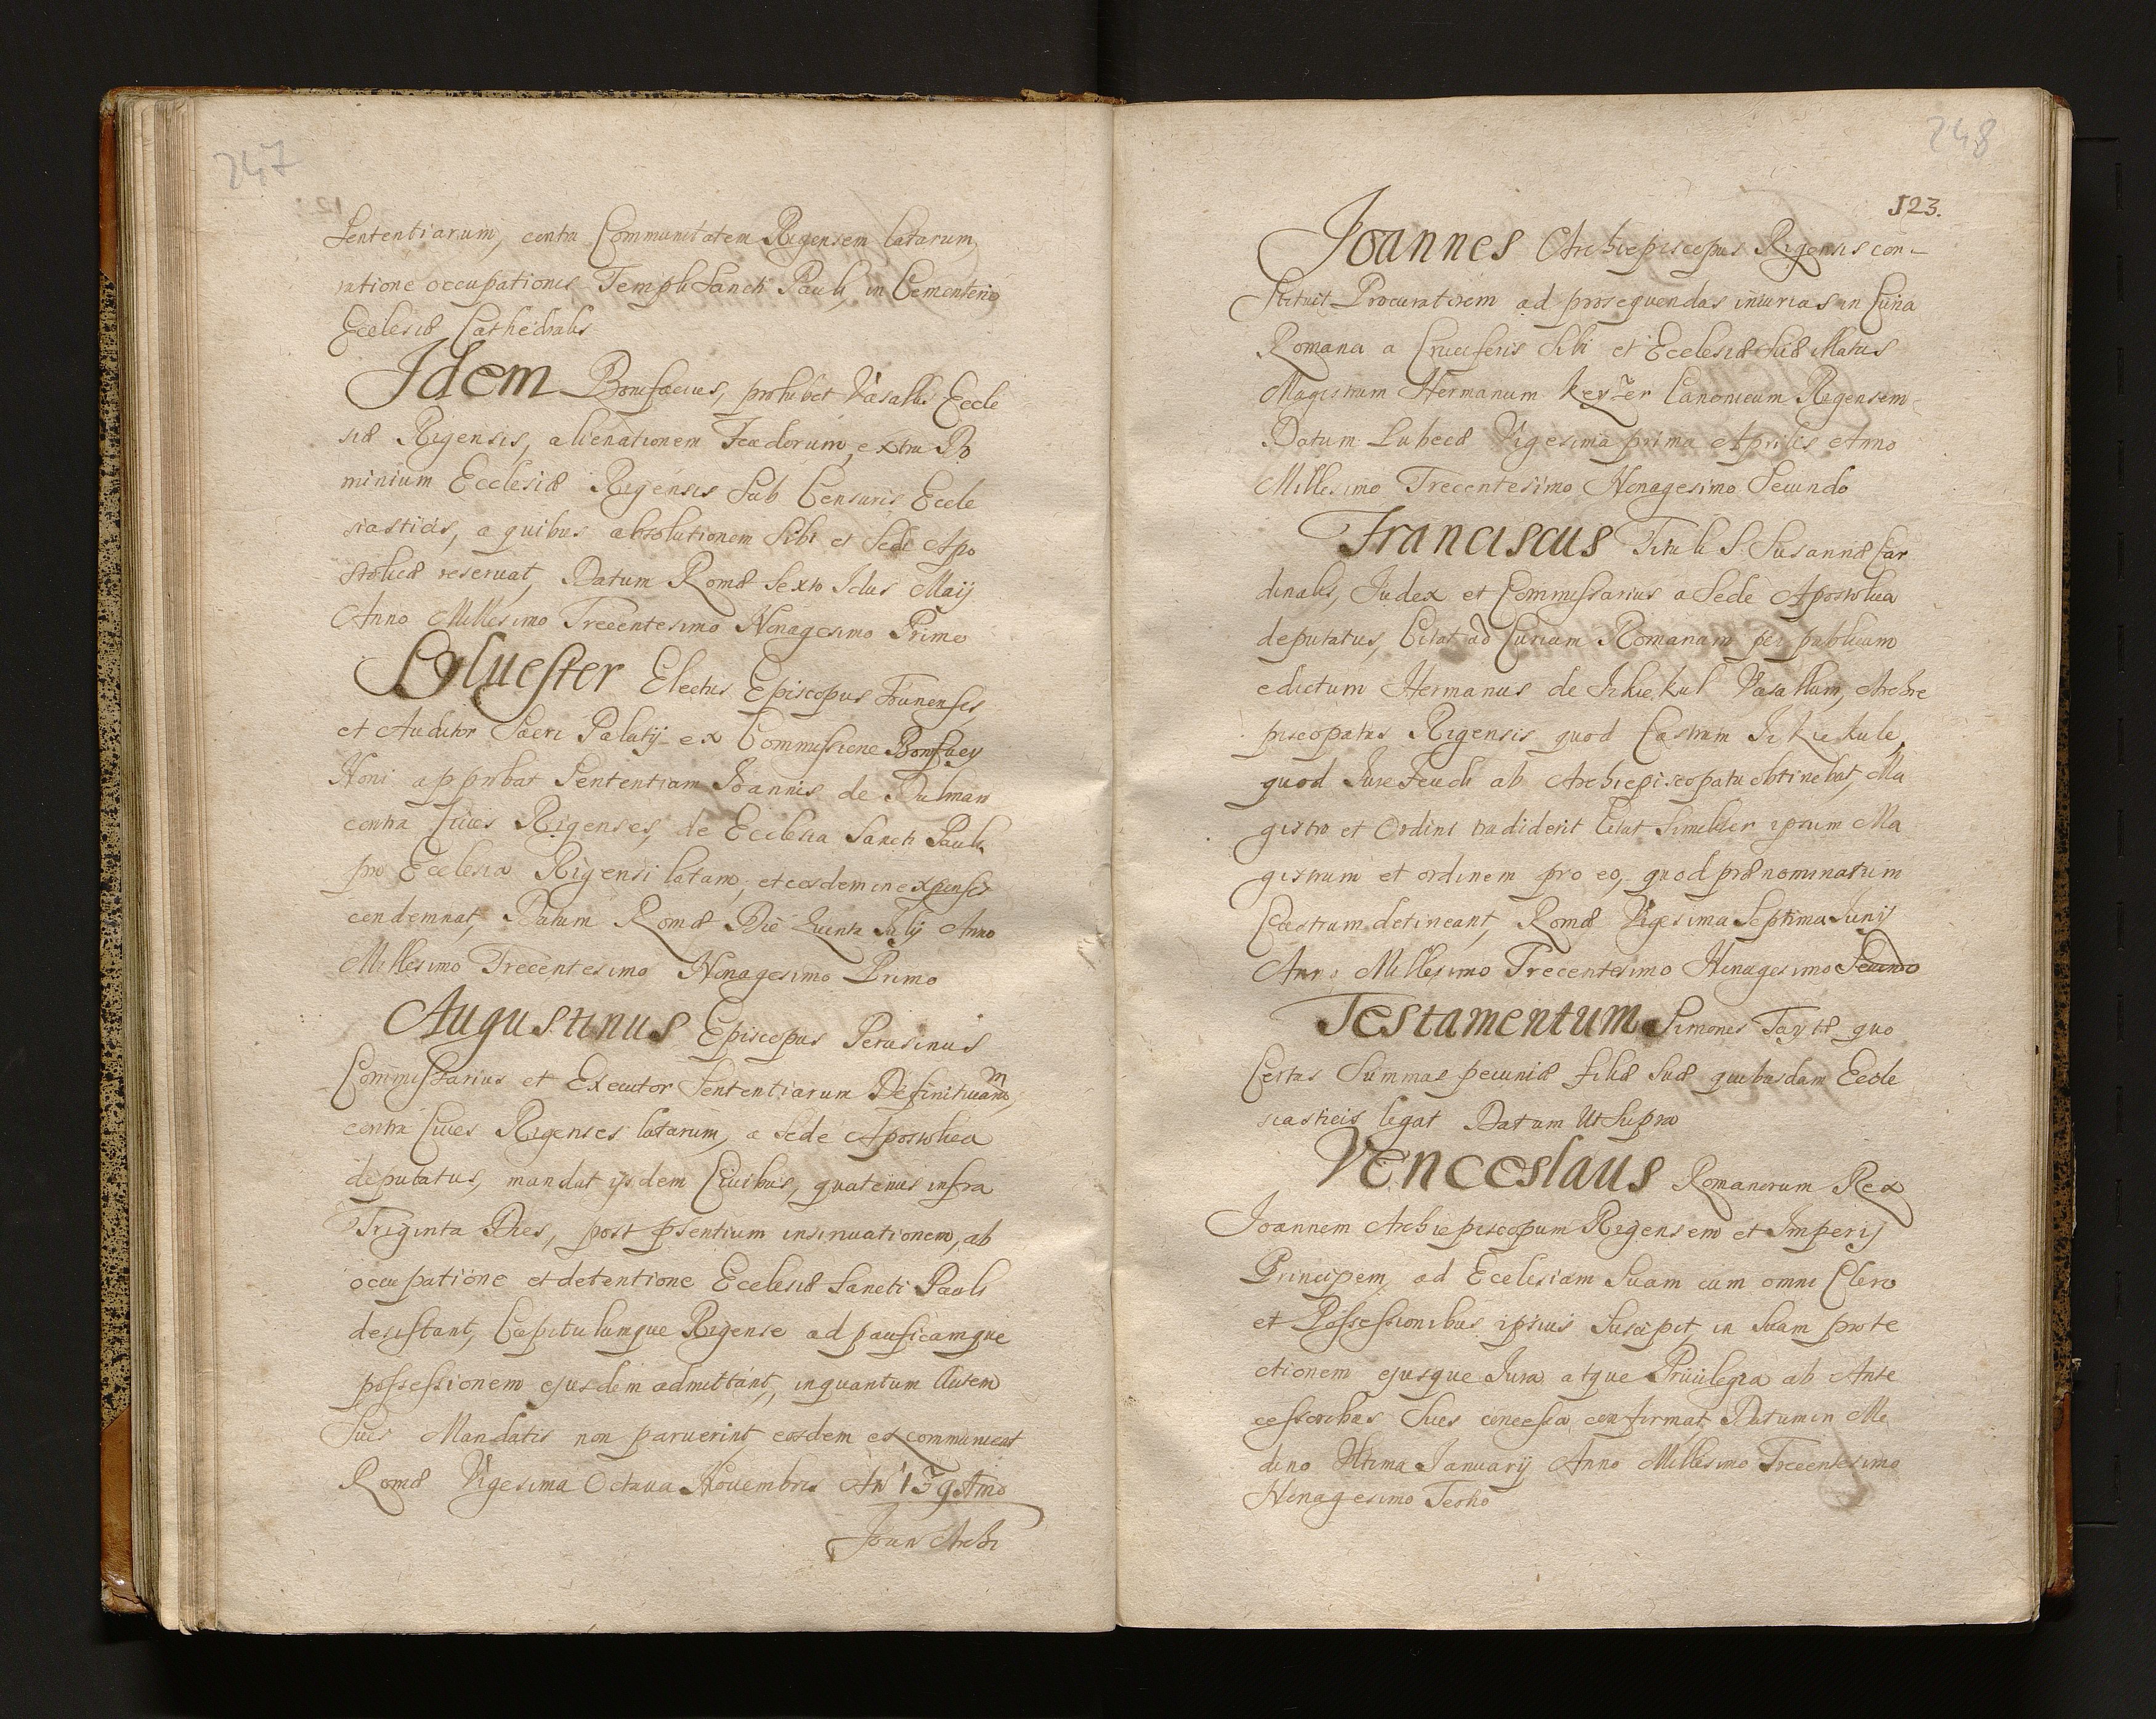 247
Sententiarum, contra Communitatem Rigensem latarum,
ratione occupationis Templi Sancti Pauli, in Cementerio
Ecclesiæ Cathedralis
Idem Bonifacius, prohibet Vasallis Eccle
siæ Rigensis, alienationem Feudorum, extra Do
minium Ecclesiæ Rigensis Sub Censuris Eccle
siasticis, a quibus absolutionem Sibi et Sedi Apo
stolicæ reseruat, Datum Romæ Sexto Idus Maij
Anno Millesimo Trecentesimo Nonagesimo Primo
Syluester Electus Episcopus
et Auditor Sacri Palatij ex Commissione Bonifacij
Noni approbat Sententiam Joannis de Dulman
contra Ciues Rigenses, de Ecclesia Sancti Pauli
pro Ecclesia Rigensi latam, et eosdem in expensis
condemnat, Datum Romæ Die Quinta Julij Anno
Millesimo Trecentesimo Nonagesimo Primo
Augustinus Episcopus Perusinus
Commissarius et Executor Sententiarum Definitiuarum,
contra Ciues Rigenses latarum, a Sede Apostolica
deputatus, mandat ijsdem Ciuibus, quatenus infra
Triginta Dies, post psentium insinuationem, ab
occupatione et detentione Ecclesiæ Sancti Pauli
desistant, Capitulumque Rigense ad pacificamque
possessionem ejusdem admittant, inquantum Autem
Suis Mandatis non paruerint eosdem excommunicat
Romæ Vigesima Octaua Nouembris An
Joan Archi
248
123.
Joannes Archiepiscopus Rigensis con-
stituit Procuratorem ad prosequendas iniurias in Curia
Romana a Cruciferis Sibi et Ecclesiæ Suæ illatas
Magistrum Hermanum Keyzer Canonicum Rigensem
Datum Lubecæ Vigesima prima Aprilis Anno
Millesimo Trecentesimo Nonagesimo Secundo
Franciscus Tituli S. Susannæ Car
dinalis, Judex et Commissarius a Sede Apostolica
deputatus, Citat ad Curiam Romanam per publicum
edictum Hermanus de Ikiekul Vasallum, Archie
piscopatus Rigensis quod Castrum Ikiekule
quod Jure Feudi ab Archiepiscopatu obtinebat, Ma
gistro et Ordini tradiderit Citat Similiter ipsum Ma
gistrum et ordinem pro eo, quod prænominatum
Castrum detineant, Romæ Vigesima Septima Junij
Anno Millesimo Trecentesimo Nonagesimo Secundo
Testamentum Simonis Taytæ quo
Certas Summas pecuniæ filiæ Suæ quibusdam Eccle
siasticis legat Datum Ut Supra
Venceslaus Romanorum Rex
Joannem Archiepiscopum Rigensem et Imperij
Principem, ad Ecclesiam Suam cum omni Clero
et Possessionibus ipsius Suscipit, in Suam prote
ctionem ejusque Jura atque Priuilegia ab Ante
cessoribus Suis concessa confirmat, Datum in Me
dino Ultima Januarij Anno Millesimo Trecentesimo
Nonagesimo Tertio